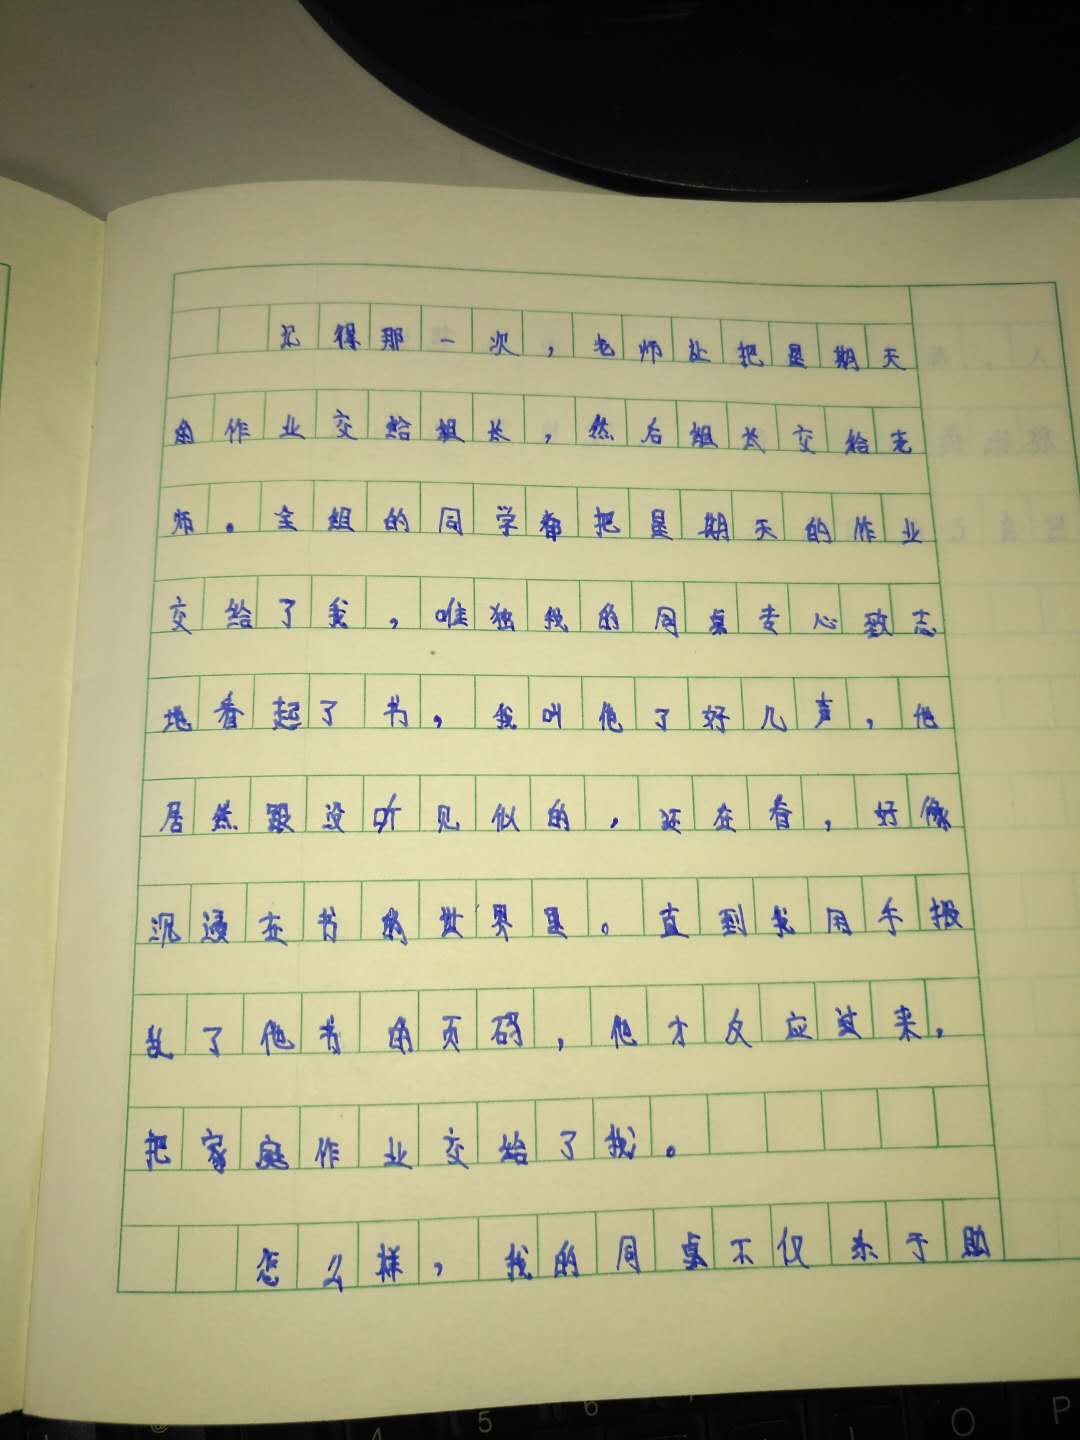 记得那一次，老师让把星期天
的作业交给组长，然后组长交给老
师。全组的同学都把星期天的作业
交给了我，唯独我的同桌专心致志
地看起了书，我叫他了好几声，他
居然跟没听见似的，还在看，好像
沉浸在书的世界里。直到我用手扳
乱了他书的页码，他才反应过来，
把家庭作业交给了我。
怎么样，我的同桌不仅乐于助
5
6
O
P